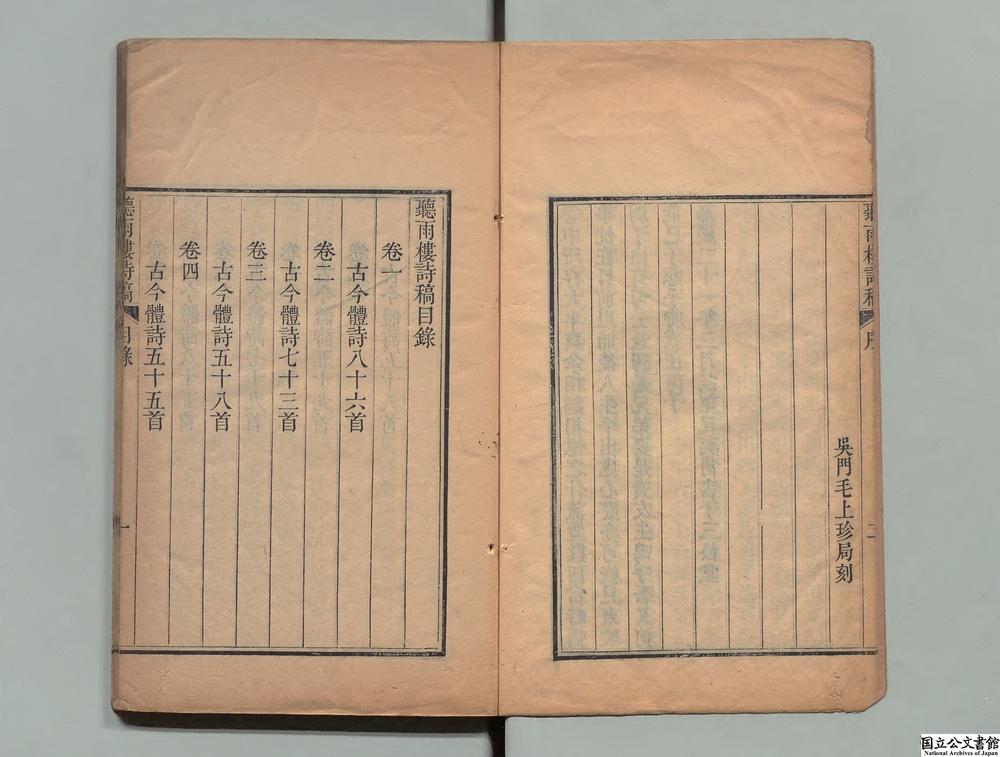 吳門毛上珍局刻
聽雨樓詩稿
序
二
聽雨樓詩稿目錄
卷一
古今體詩八十六首
卷二
古今體詩七十三首
卷三
古今體詩五十八首
卷四
古今體詩五十五首
聽雨樓詩稿
目錄
一
国立公文書館
National Archives of Japan